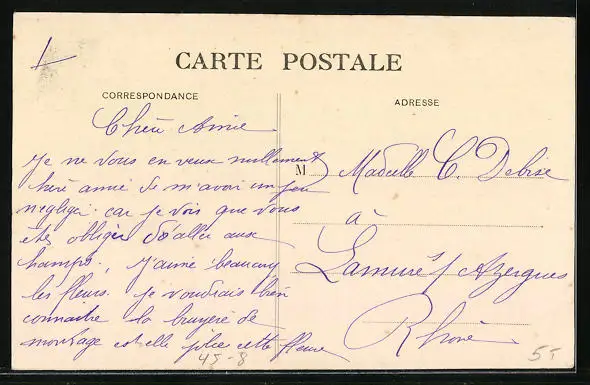 CARTE POSTALE
CORRESPONDANCE
ADRESSE
Chère Amie
Je ne vous en veux nullement
chère amie de m'avoir un peu
négligée. car je vois que vous
êtes obligée d'aller aux
champs, j'aime beaucoup
les fleurs. Je voudrais bien
connaitre la bruyère de
montage est elle jolie cette fleure
M Madelle C. Debise
à
Lamure s/ Azergues
Rhône
45-8
55